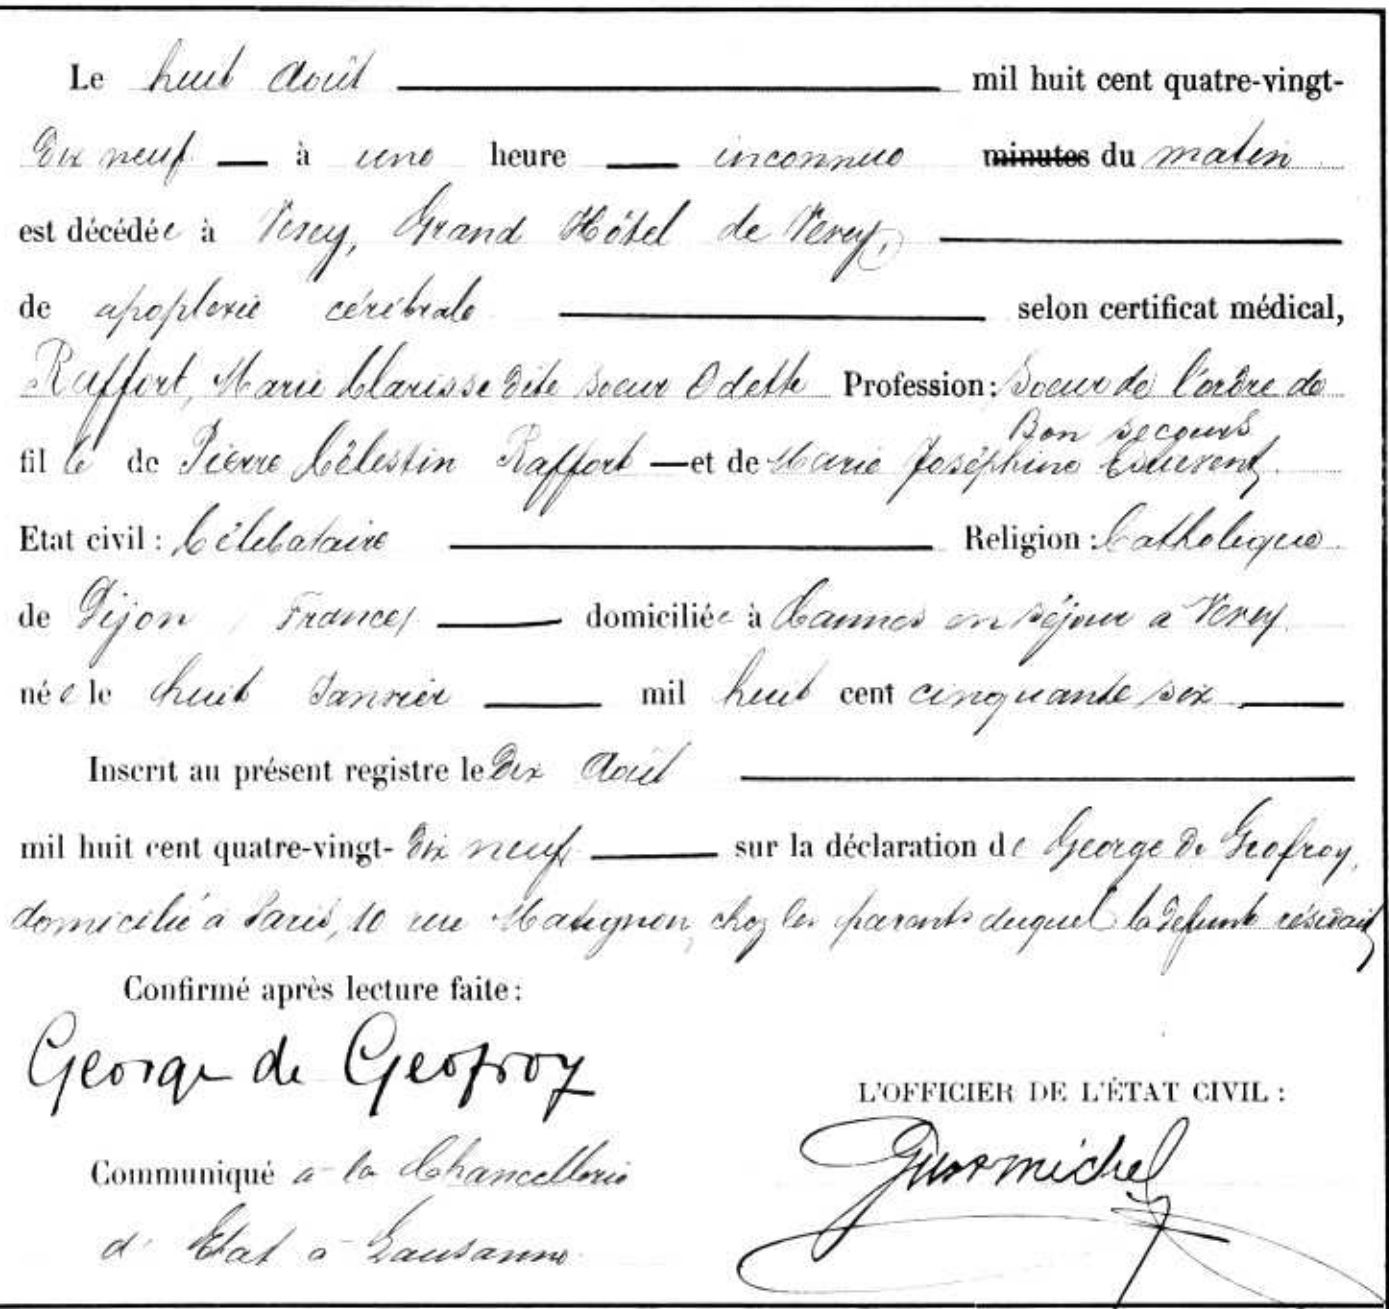 Le huit Août mil huit cent quatre-vingt-
Dix neuf à une heure inconnue minutes du matin
est décédée à Vevey, Grand Hôtel de Vevey,
de apoplexie cérébrale selon certificat médical,
Raffort, Marie Clarisse dite soeur Odette Profession: Soeur de l'ordre de
Bon secours
fille de Pierre Célestin Raffort et de Marie Joséphine
Etat civil: Célibataire Religion: Catholique
de Dijon, France, domiciliée à Cannes en séjour à Vevey
née le huit Janvier mil huit cent cinquante six
Inscrit au présent registre le Dix Août
mil huit cent quatre-vingt- dix neuf sur la déclaration de George de Geofroy,
domicilié à Paris, 10 rue Matignon, chez les parents duquel la défunte résidait
Confirmé après lecture faite:
George de Geofroy
L'OFFICIER DE L'ÉTAT CIVIL:
Communiqué à la Chancellerie
d'Etat à Lausanne